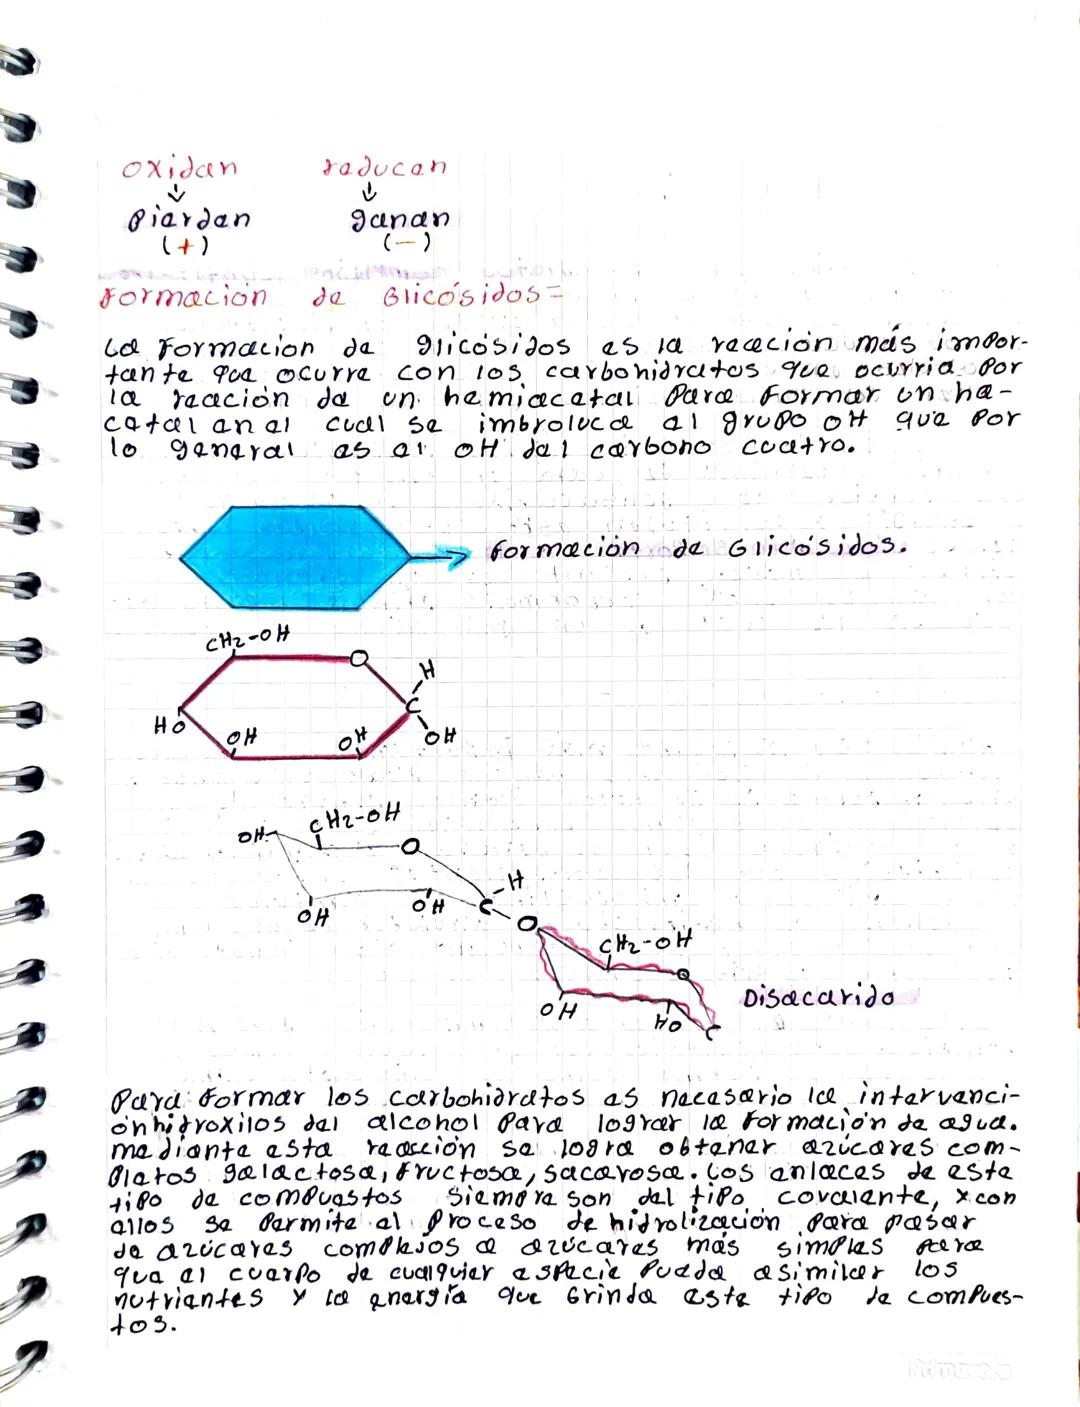 oxidan reducen
pierden ganan
(+) (-)
Formación de Glicósidos=
La formacion de glicósidos es la reacción más impor-
tante que ocurre con los carbohidratos que ocurria por
la reación de un hemiacetal para formar un he-
cetal en el cual se imbroluca al grupo OH que por
lo general es el OH del carbono cuatro.
formación de Glicósidos.
CH2-OH
O
H
C
HO OH OH OH
CH2-OH
OH O
H
C
OH OH O
CH2-OH
O
Disacarido
OH HO C
Para formar los carbohidratos es necesario la intervenci-
ónhidroxilos del alcohol para lograr la formación de agua.
mediante esta reacción se logra obtener azúcares com-
pletos galactosa, fructosa, sacarosa. Los enlaces de este
tipo de compuestos siempre son del tipo covalente, x con
ellos se permite el proceso de hidrolización para pasar
de azúcares complejos a azúcares más simples para
que el cuerpo de cualquier especie pueda asimilar los
nutrientes y la energía que brinda este tipo de compues-
tos.